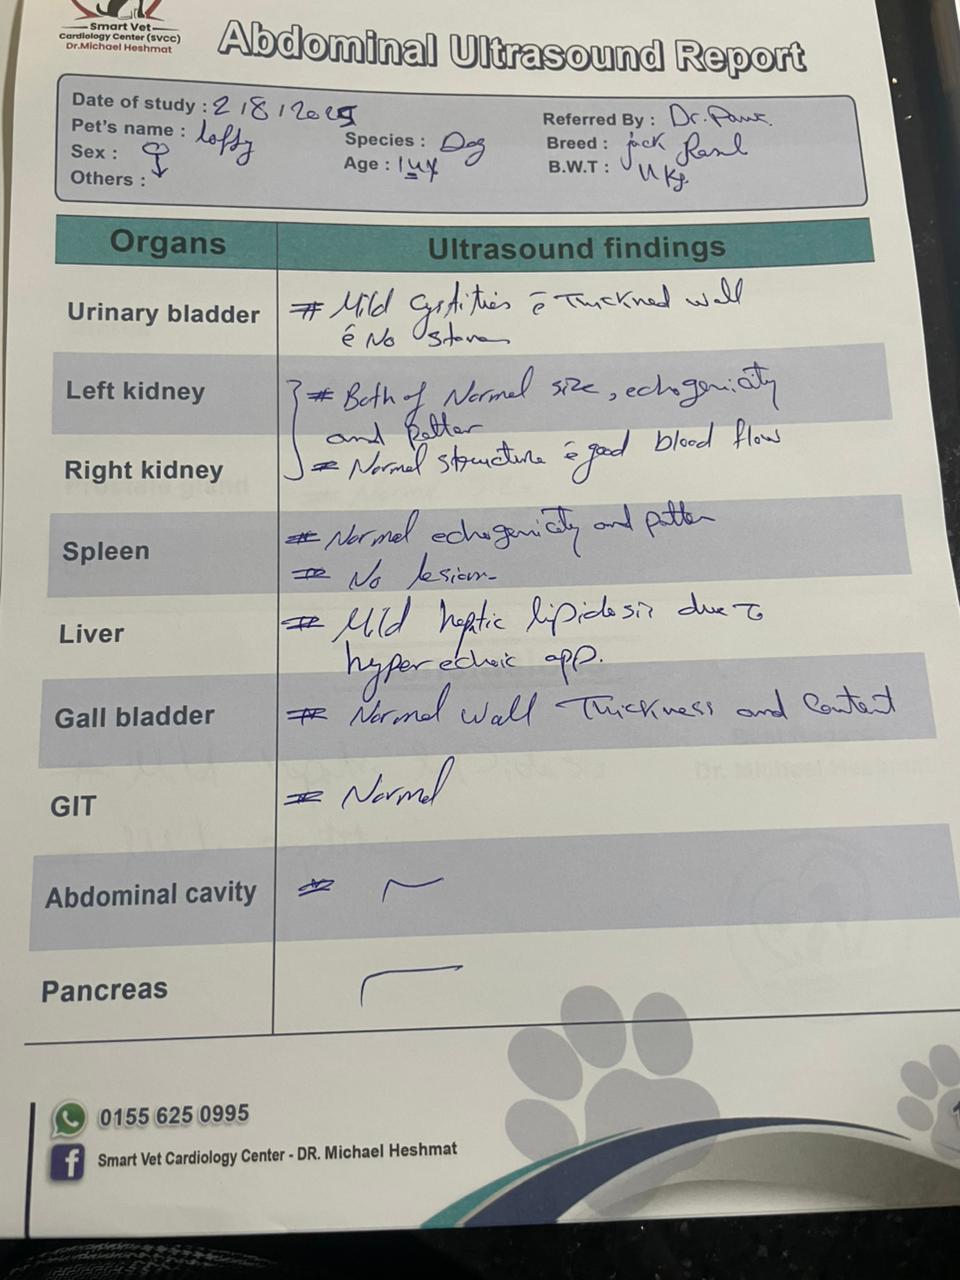 Smart Vet
Cardiology Center (SVCC)
Dr.Michael Heshmat
Abdominal Ultrasound Report
Date of study : 2 / 8 / 2025
Referred By : Dr.
Pet's name : lofty
Species : Dog
Breed : jack
Sex : ♀
Age :
B.W.T : Kg
Others :
Organs
Ultrasound findings
Urinary bladder
# Mild Cystities ē Thickned wall
ē No stones
Left kidney
# Both of Normal size, echogenicity
and patter
Right kidney
# Normal structure ē good blood flow
Spleen
# Normal echogenicity and patter
# No lesion-
Liver
# Mild heptic lipidosis due to
hyper echoic app.
Gall bladder
# Normal wall Thickness and Content
GIT
# Normal
Abdominal cavity
#
Pancreas
0155 625 0995
f Smart Vet Cardiology Center - DR. Michael Heshmat